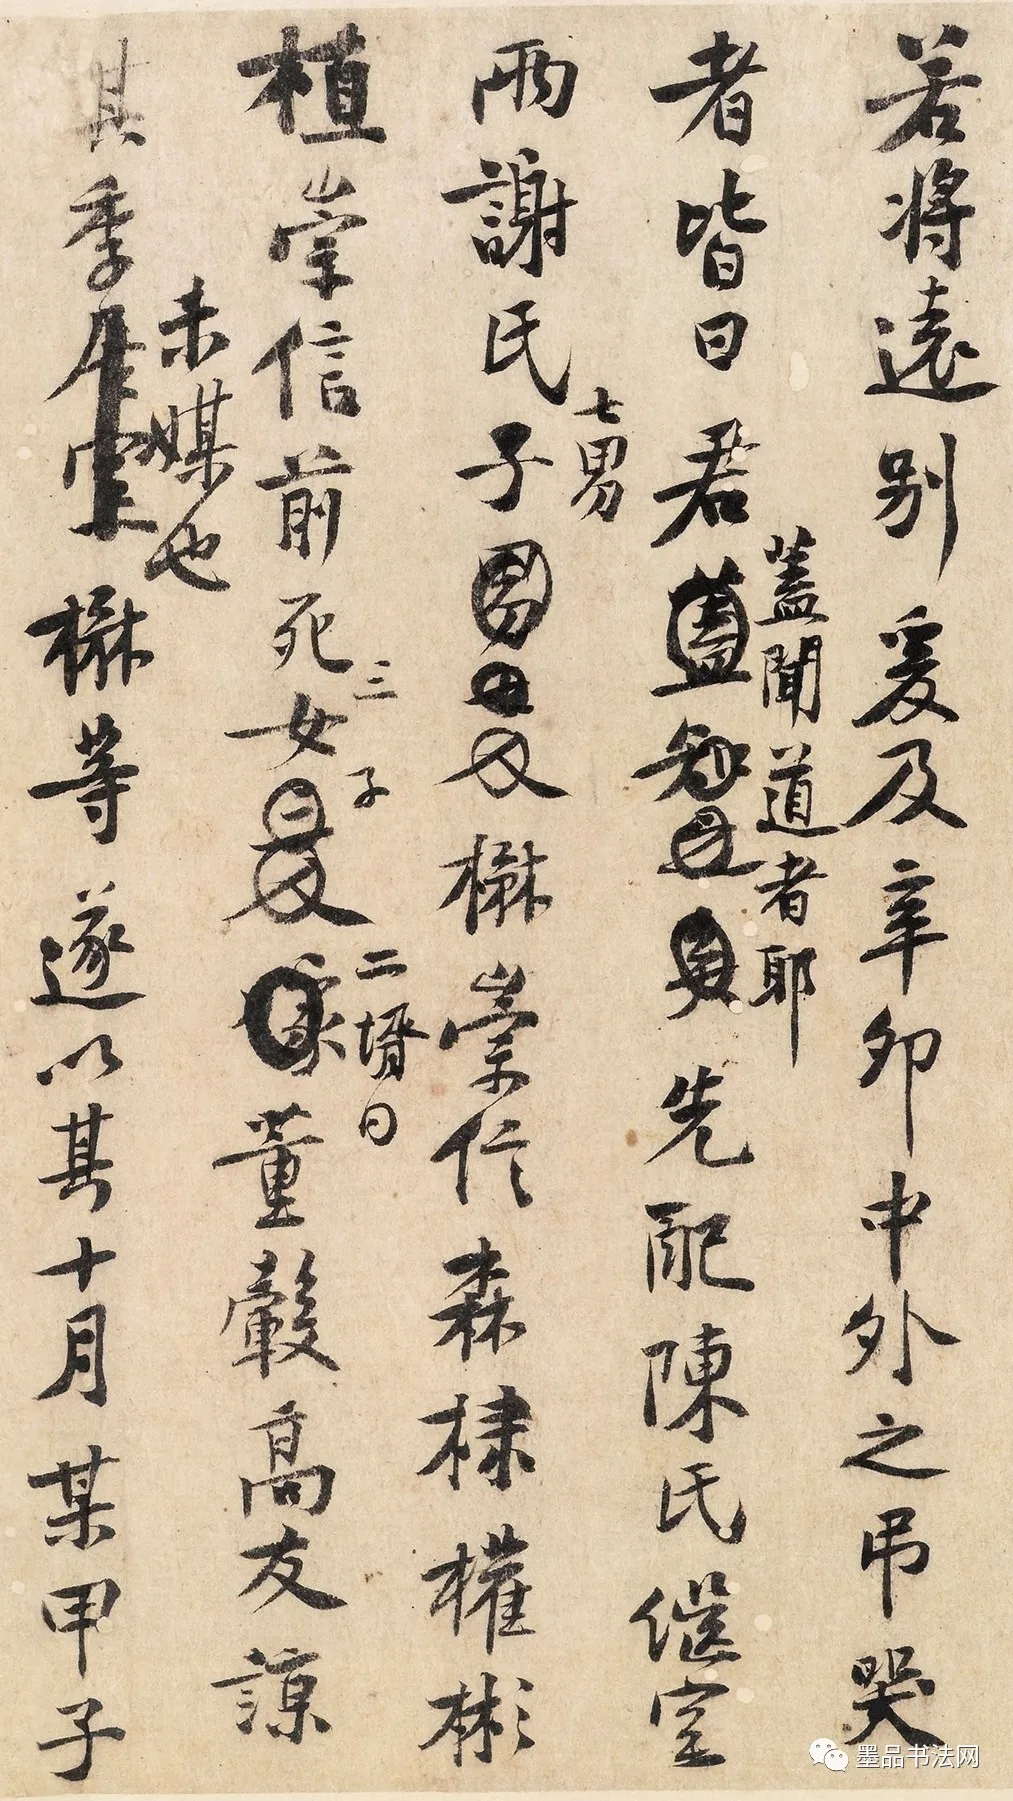 若将遠别爰及辛卯中外之弔哭
者皆曰君盖聞道者耶先配陳氏继室
兩謝氏子七男楙崇信森棣權彬
植崇信前死女三子二壻曰董轂高友諒
其季未媒也楙等遂以其十月某甲子
墨品书法网